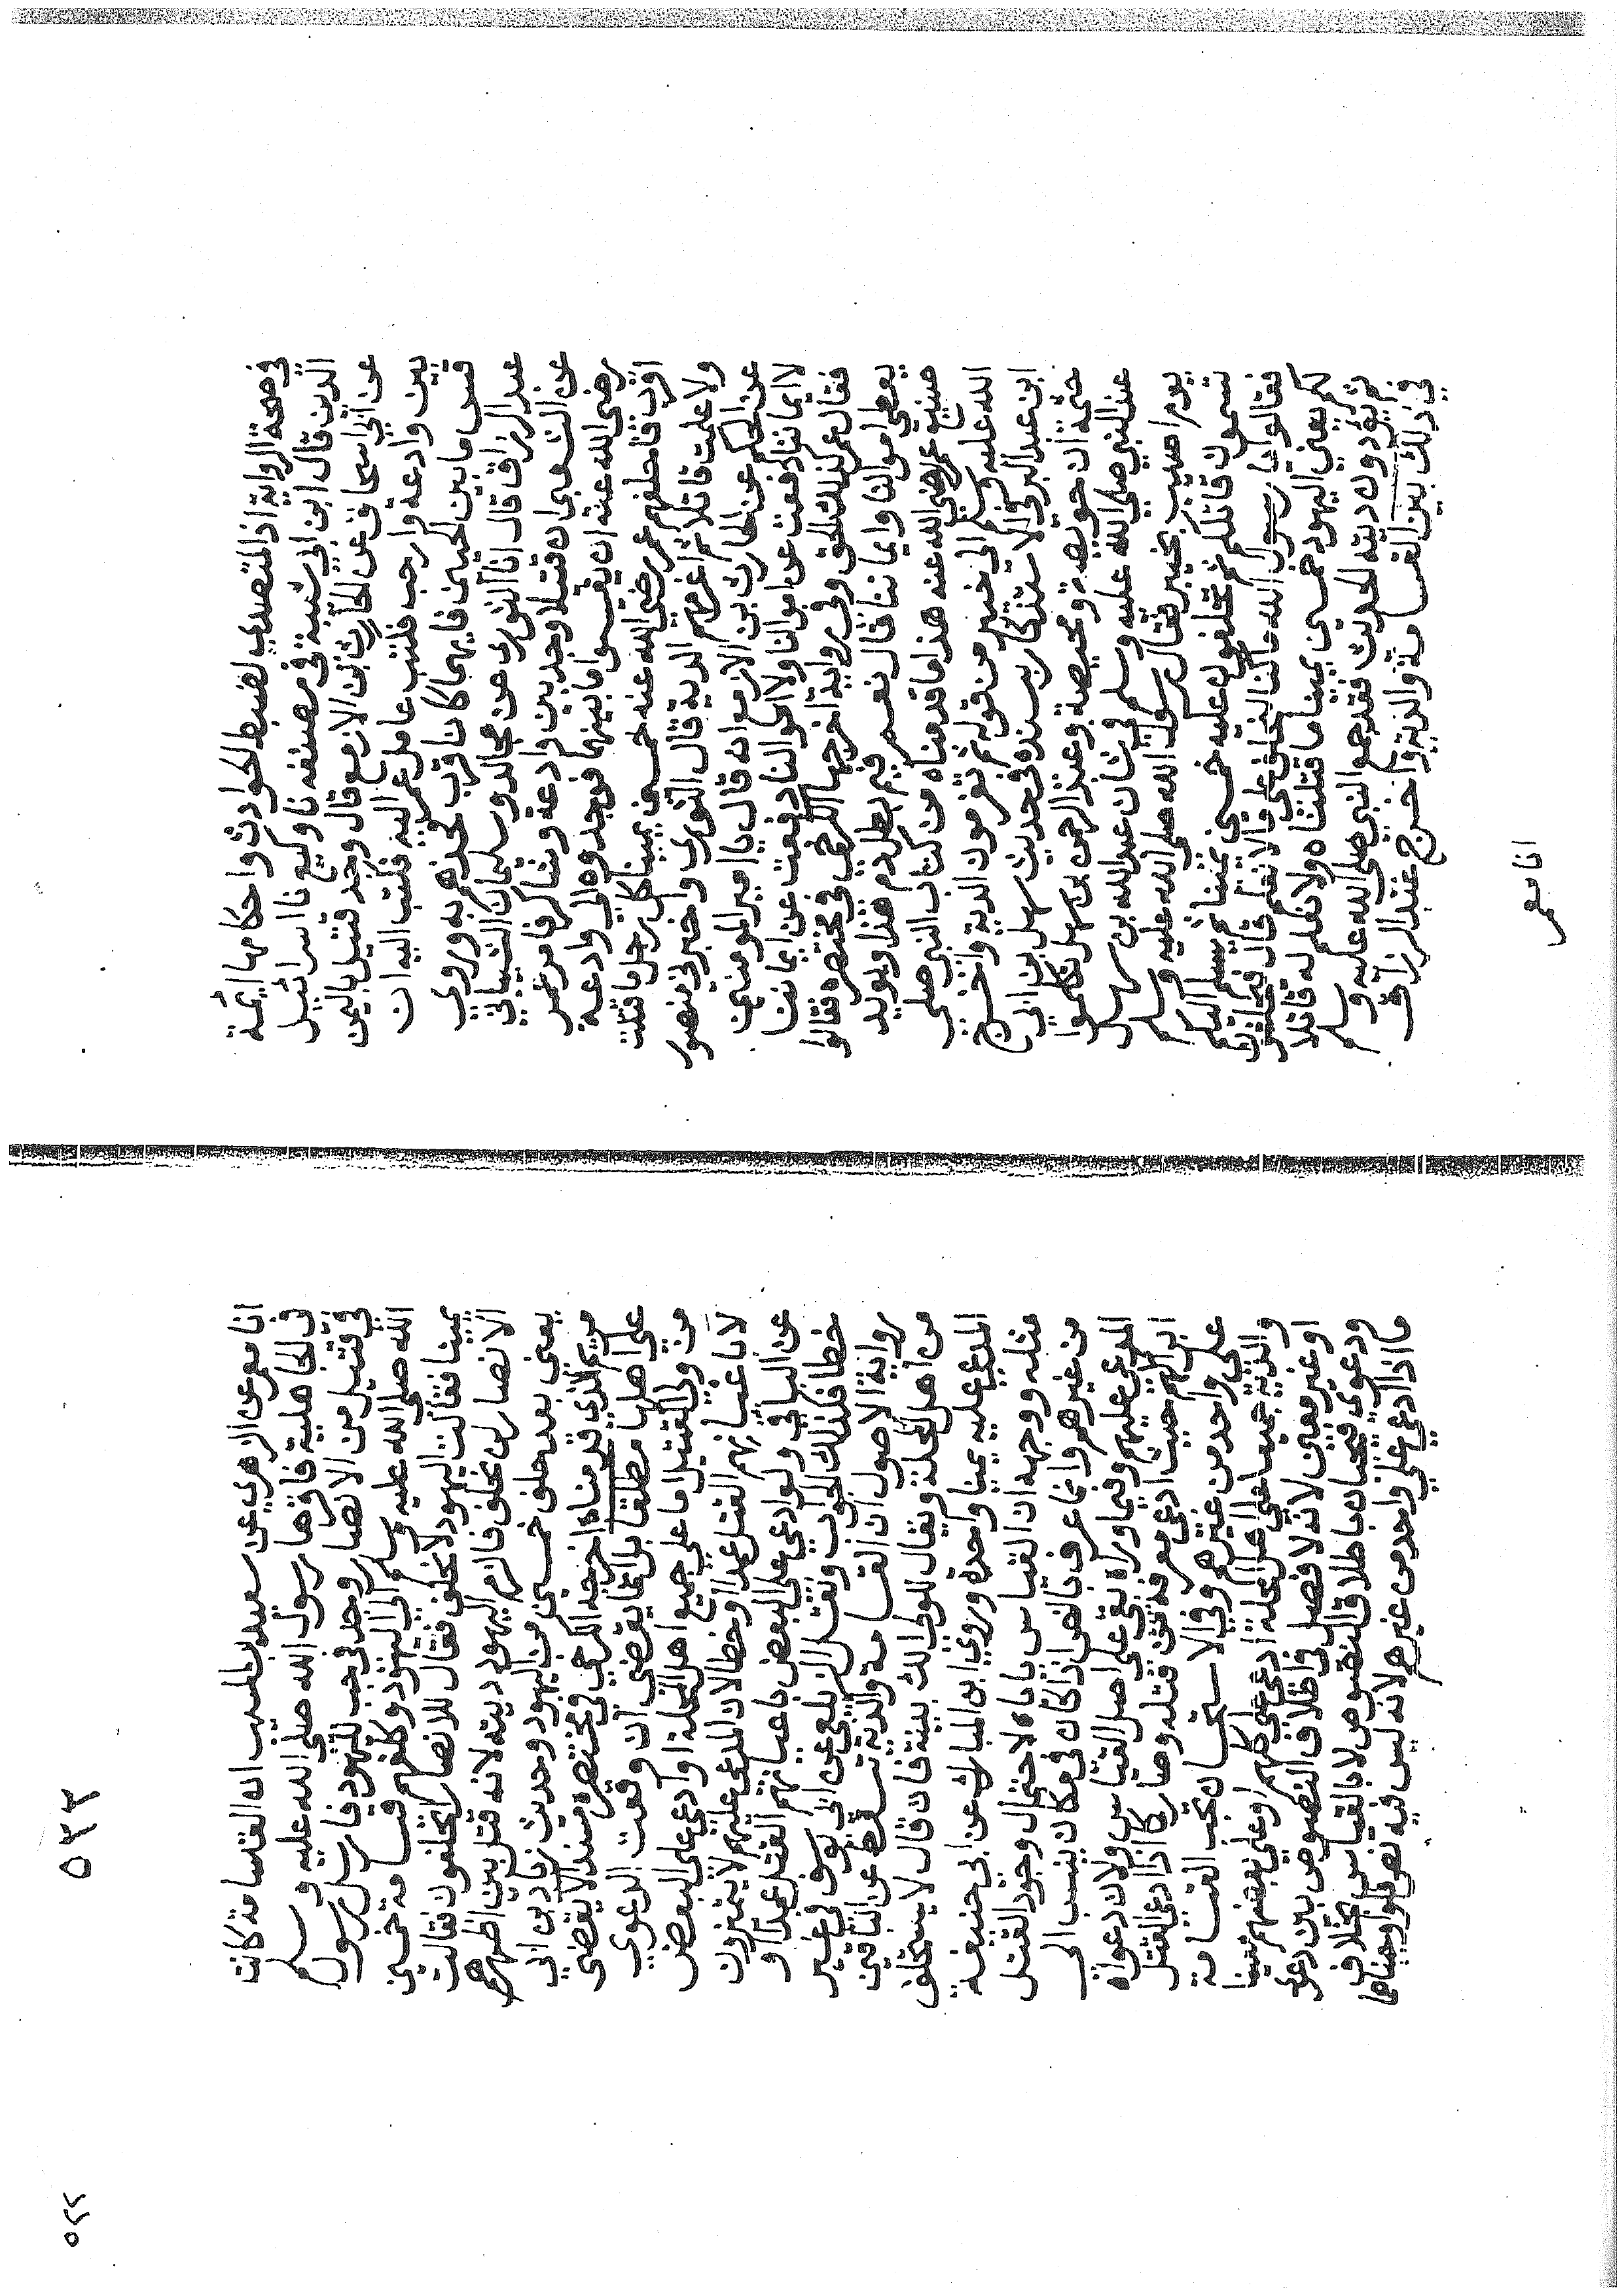 في صحة الرواية اذ المتصدي لضبط الحوادث واحكامها ائمة
الدين قال ابن ابي شيبة في مصنفه نا وكيع نا اسرائيل
عن ابي اسحاق عن الحارث بن الازمع قال وجد قتيل باليمن
بين وادعة وارحب فكتب عامل عمر اليه فكتب اليه ان
قس ما بين الحيين فايهما كان اقرب فخذهم به وروي
عبد الرزاق قال انا الثوري عن مجالد وسليمان الشيباني
عن الشعبي ان قتيلا وجد بين وادعة وشاكر فامر عمر
رضي الله عنه ان يقيسوا ما بينهما فوجدوه الي وادعة
اقرب فاحلفهم عمر رضي الله عنه خمسين يمينا كل رجل ما قتلت
ولا علمت قاتلا ثم اغرمهم الدية قال الثوري واخبرني منصور
عن الحكم عن الحارث بن الازمع انه قال يا امير المومنين
لا ايماننا دفعت عن اموالنا ولا اموالنا دفعت عن ايماننا
فقال عمر كذلك الحق وفي رواية اخرجها الكرخي في مختصره فقالوا
يعطي اموالنا وايماننا قال نعم فبم يطل دم هذا ويويد
صنيع عمر رضي الله عنه هذا ما قدمناه من كتاب النبي صلي
الله عليه وسلم الي خيبر من قوله ثم تغرمون الدية واخرج
ابن عبد البر في الاستذكار بسنده في حديث سهل بن ابي
حثمة ان حويصة ومحيصة وعبد الرحمن بن سهل تكلموا
عند النبي صلي الله عليه وسلم في شان عبد الله بن سهل
يوم اصيب بخيبر فقال رسول الله صلي الله عليه وسلم
تسمون قاتلكم ثم تحلفون عليه خمسين يمينا ثم يسلم اليكم
فقالوا يا رسول الله ما كنا لنحلف علي ما لا نعلم قال
لكم يعني اليهود خمسين يمينا ما قتلناه ولا نعلم له قاتلا
ثم يؤدون ديته الحديث فقد جمع النبي صلي الله عليه وسلم
في ذلك بين القسامة والدية واخرج عبد الرزاق
انا معمر
٥٢٢
انا معمر عن الزهري عن سعيد بن المسيب ان القسامة كانت
في الجاهلية فاقرها رسول الله صلي الله عليه وسلم
في قتيل من الانصار وجد في جب لليهود فارسل رسول
الله صلي الله عليه وسلم الي اليهود وكلفهم قسامة خمسين
يمينا فقالت اليهود لا نحلف فقال للانصار اتحلفون فقالت
الانصار لن نحلف فالزم اليهود ديته لانه قتل بين اظهرهم
يعني بعد حلف خمسين من اليهود وحديث زياد بن ابي
مريم الذي قدمناه اخرجه الكرخي في مختصره مسندا لا يقضي
علي اهلها مطلقا بل انما يقضي ان وقعت الدعوي
من ولي القتيل اما علي جميع اهل المحلة او ادعي علي البعض
لا باعيانهم القتل عمدا او خطا لان المدعي عليهم لا يتميزون
عن الباقي ولو ادعي علي البعض باعيانهم القتل عمدا او
خطا فكذلك الجواب ونقل الزيلعي عن ابي يوسف في غير
رواية الاصول ان القسامة والدية تسقط عن الباقين
من اهل المحلة ويقال للولي الك بينة فان قال لا يستحلف
المدعي عليه يمينا واحدة وروي ابن المبارك عن ابي حنيفة
مثله ووجهه ان القياس ياباه لاحتمال وجود القتل
من غيرهم وانما عرف بالنص اذا كان في مكان ينسب الي
المدعي عليهم وفيما وراه بقي علي اصل القياس ولان دعواه
حيث ادعي معرفة من قتله وصار كما اذا ادعي القتل
علي واحد من غيرهم وفي الاستحسان تجب القسامة
والدية جميعا علي اهل المحلة ادعي علي كلهم او علي بعضهم معينا
او غير معين لانه لا فصل في اطلاق النصوص بين دعوي
ودعوي فيجبان باطلاق النصوص لا بالقياس بخلاف
ما اذا ادعي علي واحد من غيرهم لانه ليس فيه نص
٥٢٢